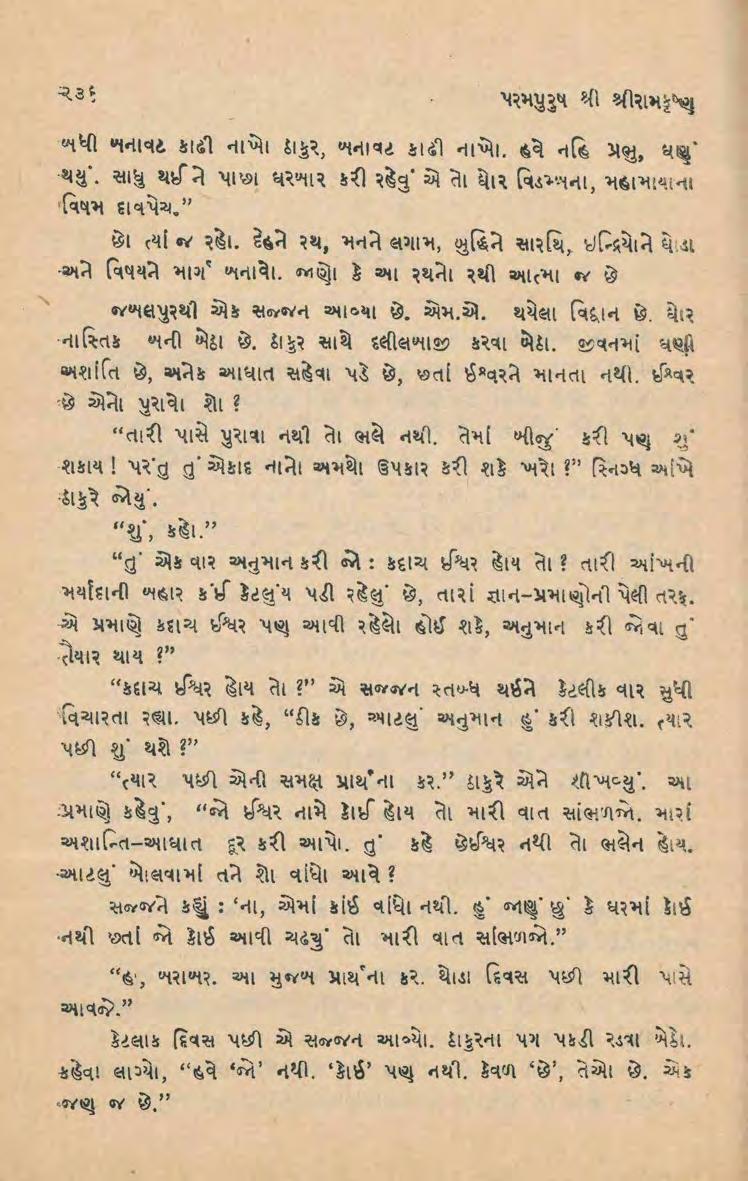 ૨૩૬
પરમપુરુષ શ્રી શ્રીરામકૃષ્ણ
બધી બનાવટ કાઢી નાખો ઠાકુર, બનાવટ કાઢી નાખો. હવે નહિ પ્રભુ, ઘણું
થયું. સાધુ થઈ ને પાછા ઘરબાર કરી રહેવું એ તો ઘોર વિડમ્બના, મહામાયાના
વિષમ દાવપેચ.”
છો ત્યાં જ રહો. દેહને રથ, મનને લગામ, બુદ્ધિને સારથિ, ઇન્દ્રિયોને ઘોડા
અને વિષયને માર્ગ બનાવો. જાણો કે આ રથનો રથી આત્મા જ છે
જબલપુરથી એક સજ્જન આવ્યા છે. એમ.એ. થયેલા વિદ્વાન છે. ઘોર
નાસ્તિક બની બેઠા છે. ઠાકુર સાથે દલીલબાજી કરવા બેઠા. જીવનમાં ઘણી
અશાંતિ છે, અનેક આઘાત સહેવા પડે છે, છતાં ઈશ્વરને માનતા નથી. ઈશ્વર
છે એનો પુરાવો શો ?
“તારી પાસે પુરાવા નથી તો ભલે નથી. તેમાં બીજું કરી પણ શું
શકાય ! પરંતુ તું એકાદ નાનો અમથો ઉપકાર કરી શકે ખરો ?” સ્નિગ્ધ આંખે
ઠાકુરે જોયું.
“શું, કહો.”
“તું એક વાર અનુમાન કરી જો : કદાચ ઈશ્વર હોય તો ? તારી આંખની
મર્યાદાની બહાર કંઈ કેટલુંય પડી રહેલું છે, તારાં જ્ઞાન-પ્રમાણોની પેલી તરફ.
એ પ્રમાણે કદાચ ઈશ્વર પણ આવી રહેલો હોઈ શકે, અનુમાન કરી જોવા તું
તૈયાર થાય ?”
“કદાચ ઈશ્વર હોય તો ?” એ સજ્જન સ્તબ્ધ થઈને કેટલીક વાર સુધી
વિચારતા રહ્યા. પછી કહે, “ઠીક છે, આટલું અનુમાન હું કરી શકીશ. ત્યાર
પછી શું થશે ?”
“ત્યાર પછી એની સમક્ષ પ્રાર્થના કર.” ઠાકુરે એને શીખવ્યું. આ
પ્રમાણે કહેવું, “જો ઈશ્વર નામે કોઈ હોય તો મારી વાત સાંભળજો. મારાં
અશાન્તિ-આઘાત દૂર કરી આપો. તું કહે છેઈશ્વર નથી તો ભલેન હોય.
આટલું બોલવામાં તને શો વાંધો આવે ?
સજ્જને કહ્યું : ‘ના, એમાં કાંઈ વાંધો નથી. હું જાણું છું કે ઘરમાં કોઈ
નથી છતાં જો કોઈ આવી ચઢચું તો મારી વાત સાંભળજો.”
“હં, બરાબર. આ મુજબ પ્રાર્થના કર. થોડા દિવસ પછી મારી પાસે
આવજે.”
કેટલાક દિવસ પછી એ સજ્જન આવ્યો. ઠાકુરના પગ પકડી રડવા બેઠો.
કહેવા લાગ્યો, “હવે ‘જો’ નથી. ‘કોઈ’ પણ નથી. કેવળ ‘છે’, તેઓ છે. એક
જણ જ છે.”